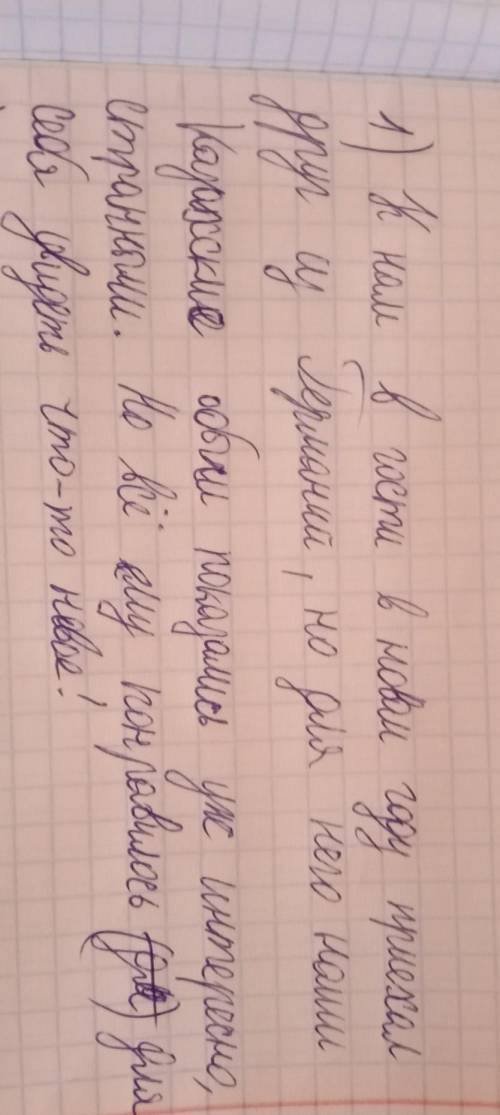 1) К нам в гости в новом году приехал
друг из Германий, но для него наши
Казахские обычи показались уж интересно,
странными. Но всё ему понравилось (для) для
себя увидеть что-то новое!